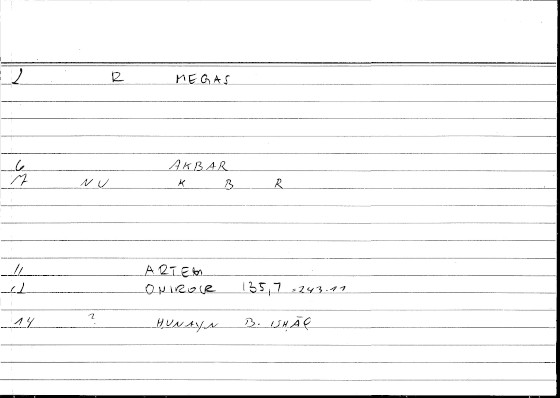 1 R MEGAS
6 AKBAR
7 NU K B R
11 ARTEM
12 ONIROCR 135,7 = 243.11
14 ? ḤUNAYN B. ISḤĀQ